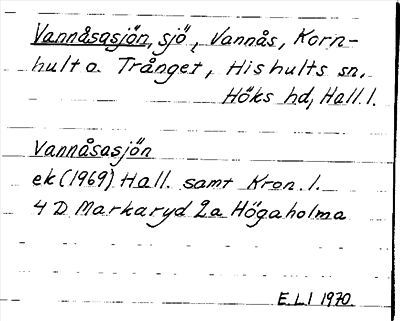 Vannåsasjön, sjö, Vannås, Korn-
hult o. Trånget, Hishults sn,
Höks hd, Hall. l.
Vannåsasjön
ek (1969) Hall. samt Kron. l.
4 D Markaryd 2a Högaholma
E.L.l 1970